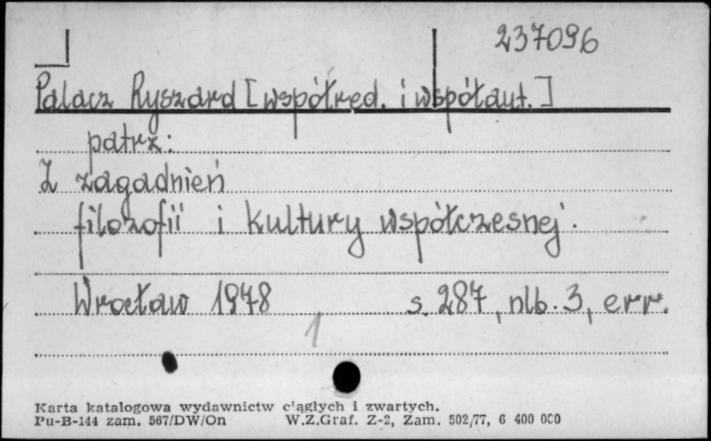 237096
Palacz Ryszard [współred. i współaut.]
patrz:
Z zagadnień
filozofii i kultury współczesnej.
Wrocław 1978 s. 287, nlb. 3, err.
1
Karta katalogowa wydawnictw ciągłych i zwartych.
Pu-B-144 zam. 567/DW/On W.Z.Graf. Z-2, Zam. 502/77, 6 400 000